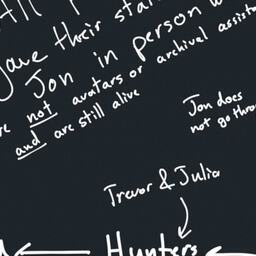 have their sta
Jon in person w
not avatars or archival assista
and are still alive
Jon does
not go thro
Trevor & Julia
Hunters